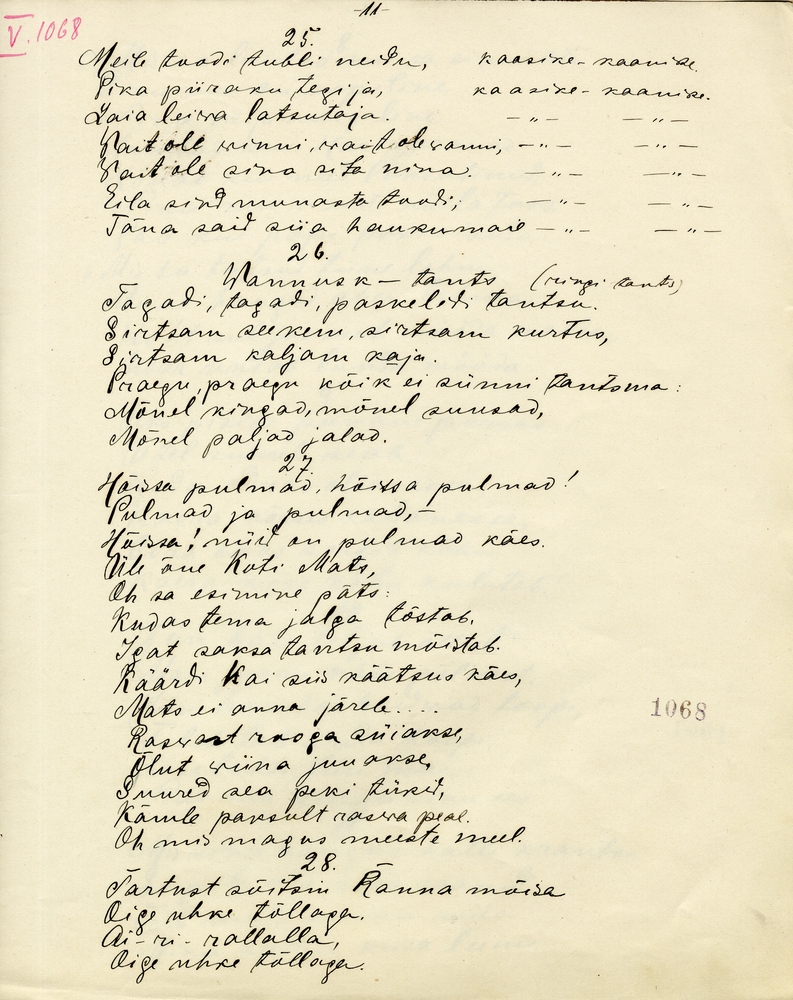 -11-
V. 1068
25.
Meile toodi tubli neidu, kaasike-kaanike.
Pika piiraku tegija, kaasike-kaanike.
Laia leiwa latsutaja. -„- -„-
Wait ole winni, wait ole wanni, -„- -„-
Wait ole sina sita nina. -„- -„-
Eila sind munasta toodi; -„- -„-
Täna said siia haukumaie -„- -„-
26.
Wannusk- tants (ringi tants)
Tagadi, tagadi, paskelidi tantsu.
Sirtsam seekem, sirtsam kurtus,
Sirtsam kaljam kaja.
Praegu, praegu kõik ei sünni tantsma:
Mõnel kingad, mõnel suusad,
Mõnel paljad jalad.
27.
Hõissa pulmad, hõissa pulmad!
Pulmad ja pulmad,-
Hõissa! nüid on pulmad käes.
Üle õue Koti Mats,
Oh sa esimine päts:
Kudas tema jalga tõstab,
Igat saksa tantsu mõistab.
Käärdi Kai siis käätsus käes,
Mats ei anna järele....
Raswast rooga süiakse,
Õlut wiina juuakse,
Suured sea peki tükid,
Kämle paksult raswa peal.
Oh mis magus meeste meel.
1068
28.
Tartust sõitsin Ranna mõisa
Õige uhke tõllaga.
Ai-ri-rallalla,
Õige uhke tõllaga.